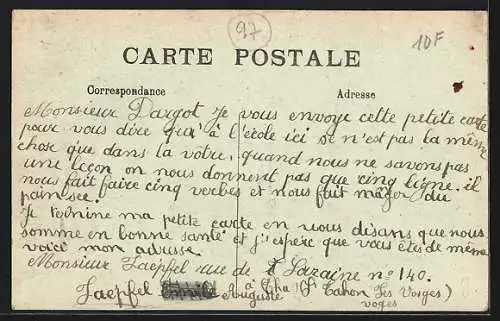 97
10F
CARTE POSTALE
Correspondance
Adresse
Monsieur Dargot Je vous envoye cette petite carte
pour vous dire qu'à l'école ici se n'est pas la même
chose que dans la vôtre, quand nous ne savons pas
une leçon on nous donnent pas que cinq ligne. il
nous fait faire cinq verbes et nous fait du
pain sec.
Je termine ma petite carte en vous disans que nous
somme en bonne santé et j'espère que vous êtes de même
voici mon adresse
Monsieur Zaepfel rue de Lazaine no 140.
Zaepfel Auguste à (St Les Vosges)
voges